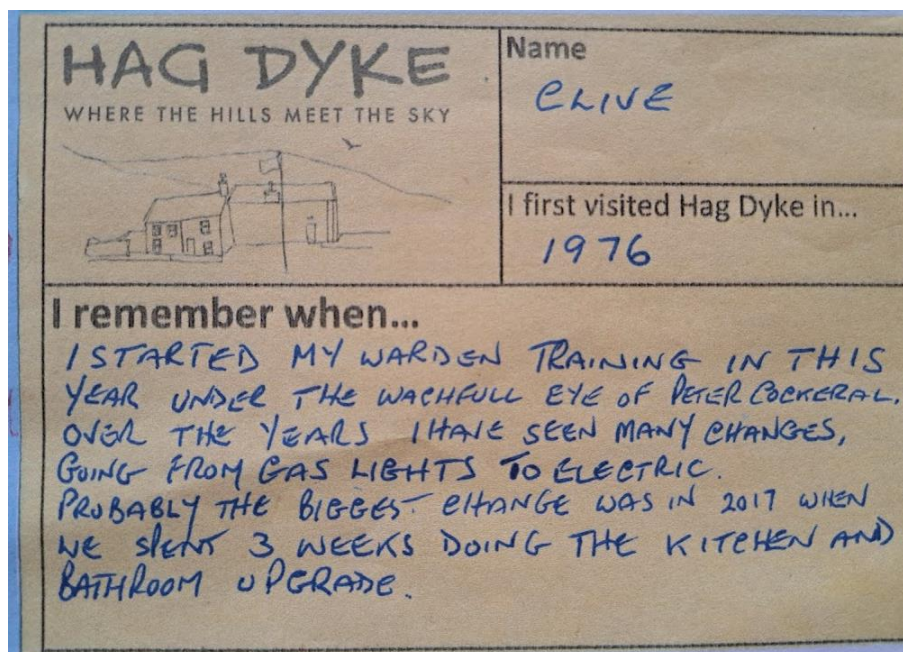 HAG DYKE
WHERE THE HILLS MEET THE SKY
Name
CLIVE
I first visited Hag Dyke in...
1976
I remember when...
I STARTED MY WARDEN TRAINING IN THIS
YEAR UNDER THE WACHFULL EYE OF PETER COCKERAL.
OVER THE YEARS I HAVE SEEN MANY CHANGES,
GOING FROM GAS LIGHTS TO ELECTRIC.
PROBABLY THE BIGGEST CHANGE WAS IN 2017 WHEN
WE SPENT 3 WEEKS DOING THE KITCHEN AND
BATHROOM UPGRADE.